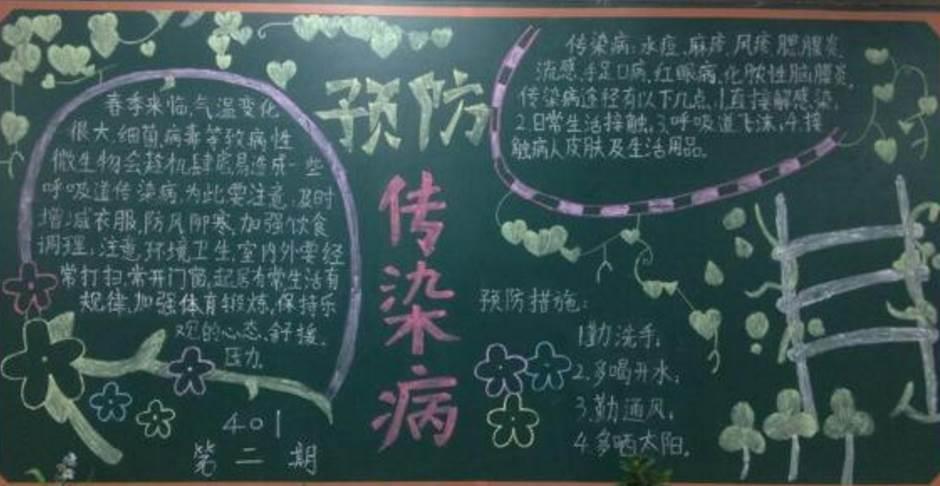 预防
传染病
春季来临,气温变化
很大,细菌,病毒等致病性
微生物会趁机肆虐,易造成一些
呼吸道传染病,为此要注意,及时
增减衣服,防风御寒,加强饮食
调理,注意环境卫生,室内外要经
常打扫,常开门窗,起居有常生活有
规律,加强体育锻炼,保持乐
观的心态,舒缓
压力。
401
第二期
传染病:水痘,麻疹,风疹,腮腺炎
流感,手足口病,红眼病,化脓性脑膜炎
传染病途径有以下几点,1.直接解感染,
2.日常生活接触,3.呼吸道飞沫,4.接
触病人皮肤及生活用品。
预防措施:
1.勤洗手;
2.多喝开水;
3.勤通风;
4.多晒太阳。